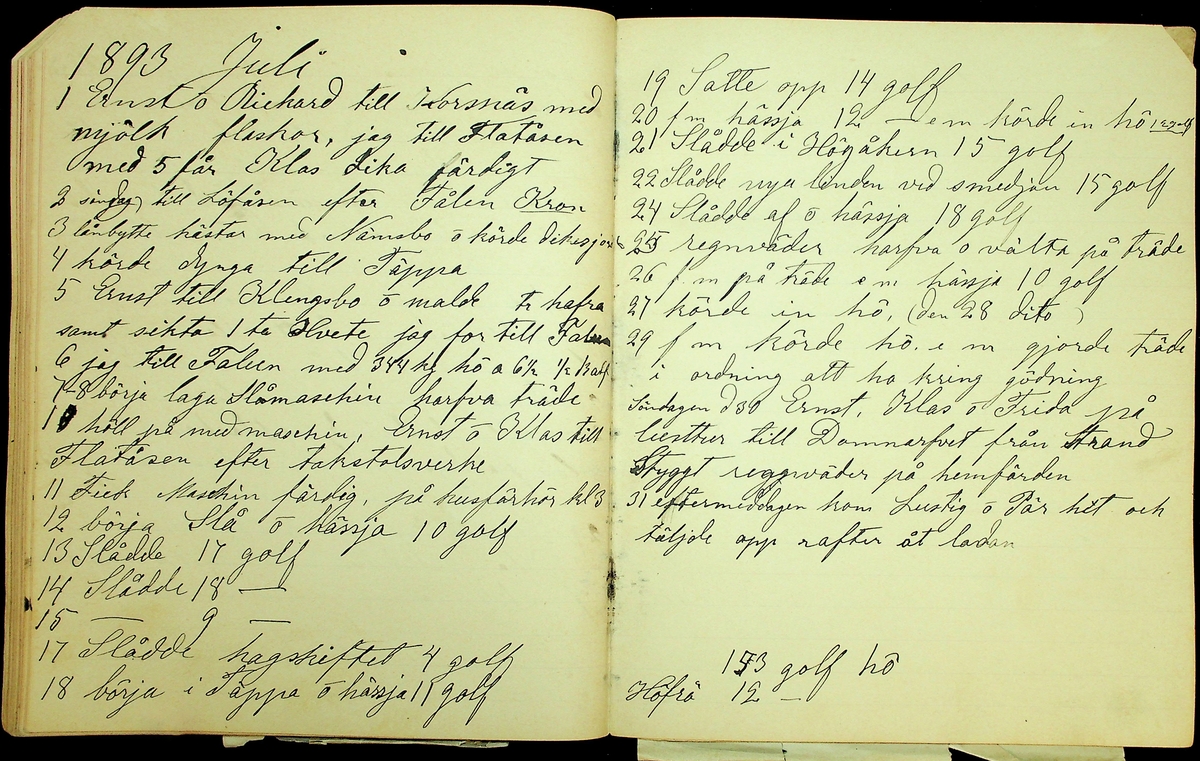 1893 Juli
1 Ernst o Rickard till Korsnäs med
mjölk flaskor, jag till Flatåsen
med 5 får Klas dika färdigt
2 söndag till Löfåsen efter Fålen Kron
3 lånbytte hästar med Nämsbo o körde
4 körde dynga till Täppa
5 Ernst till Klengsbo o malde tr hafra
samt sikta 1 ta Hvete jag for till Falun
6 jag till Falun med 344 kg hö a 6½
7-8 börja laga Slåmaschin harfva träde
10 höll på med maschin, Ernst o Klas till
Flatåsen efter takstolsverke
11 Fick Maschin färdig, på husförhör kl 3
12 börja Slå o hässja 10 golf
13 Slådde 17 golf
14 Slådde 18 —
15 — 9 —
17 Slådde hagskiftet 4 golf
18 börja i Täppa o hässja 11 golf
19 Satte opp 14 golf
20 f m hässja 12 — e m körde in hö
21 Slådde i Högåkern 15 golf
22 Slådde nya linden ved smedjan 15 golf
24 Slådde af o hässja 18 golf
25 regnväder harfva o välta på träde
26 f m på träde e m hässja 10 golf
27 körde in hö, (den 28 dito)
29 f m körde hö. e m gjorde träde
i ordning att ha kring gödning
Söndagen d 30 Ernst, Klas o Frida på
lusttur till Domnarfvet från Strand
Styggt reggnväder på hemfärden
31 eftermeddagen kom Lustig o Pär hit och
täljde opp rafter åt ladan
153 golf hö
Höfrö 12 —